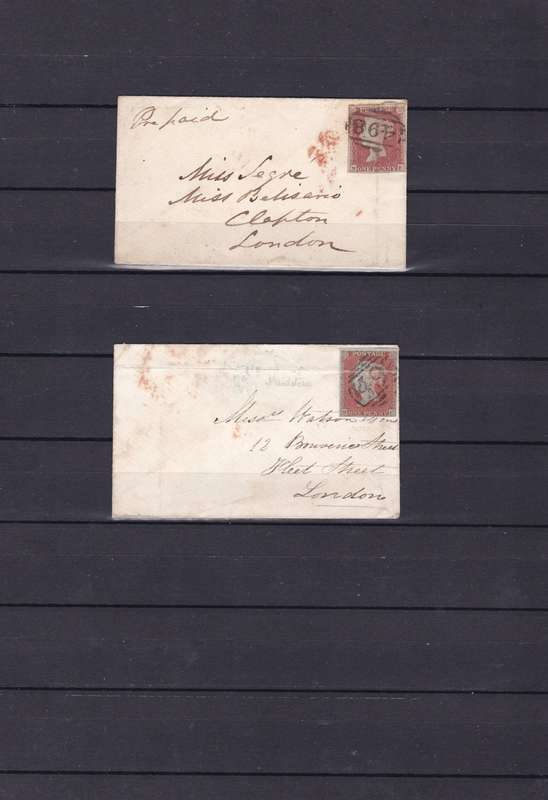 Pre paid
POSTAGE
ONE PENNY
Miss Segre
Miss Belisario
Clapton
London
POSTAGE
ONE PENNY
Messrs Watson
12 Bouverie Street
Fleet Street
London